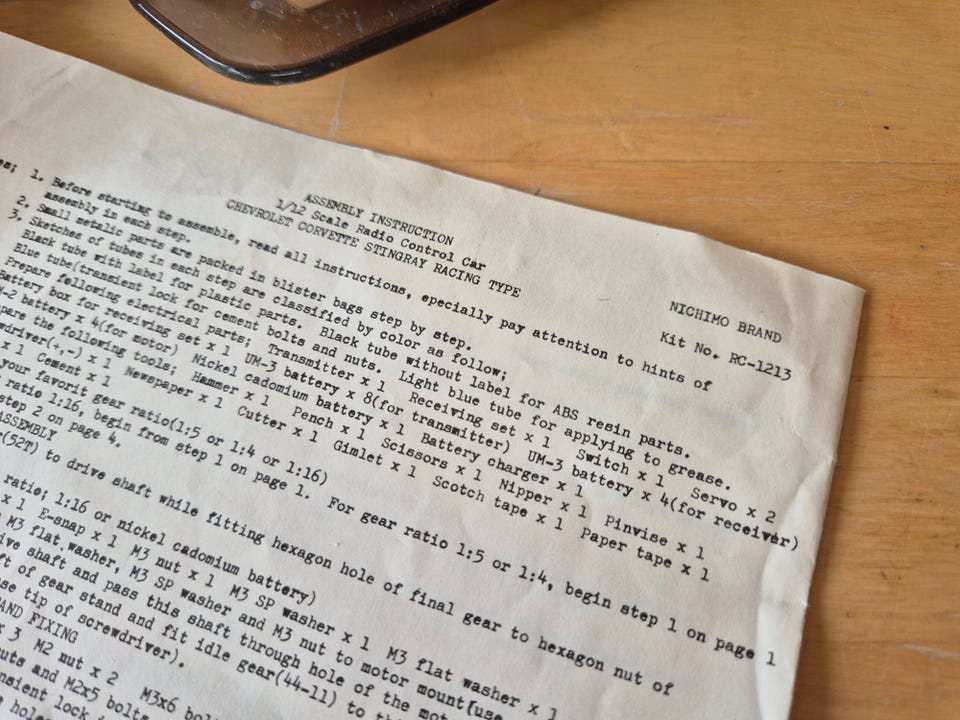 ASSEMBLY INSTRUCTION
1/12 Scale Radio Control Car
CHEVROLET CORVETTE STINGRAY RACING TYPE
NICHIMO BRAND
Kit No. RC-1213
1. Before starting to assemble, read all instructions, epecially pay attention to hints of
assembly in each step.
2. Small metalic parts are packed in blister bags step by step.
3. Sketches of tubes in each step are classified by color as follow;
Black tube with label for plastic parts. Black tube without label for ABS resin parts.
Blue tube(transient lock for cement bolts and nuts. Light blue tube for applying to grease.
Prepare following electrical parts; Transmitter x 1 Receiving set x 1 Switch x 1 Servo x 2
Battery box for receiving set x 1 UM-3 battery x 8(for transmitter) UM-3 battery x 4(for receiver)
battery x 4(for motor) Nickel cadomium battery x 1 Battery charger x 1
the following tools; Hammer x 1 Pench x 1 Scissors x 1 Nipper x 1 Pinvise x 1
(+,-) x 1 Newspaper x 1 Cutter x 1 Gimlet x 1 Scotch tape x 1 Paper tape x 1
x 1 Cement x 1
your favorit gear ratio(1:5 or 1:4 or 1:16)
ratio 1:16, begin from step 1 on page 1. For gear ratio 1:5 or 1:4, begin step 1 on page 1
step 2 on page 4.
ASSEMBLY
(52T) to drive shaft while fitting hexagon hole of final gear to hexagon nut of
ratio; 1:16 or nickel cadomium battery)
x 1 E-snap x 1 M3 nut x 1 M3 SP washer x 1 M3 flat washer x 1
M3 flat washer, M3 SP washer and M3 nut to motor mount(use
shaft and pass this shaft through hole of the
of gear stand and fit idle gear(44-11) to
tip of screwdriver).
AND FIXING
x 3 M2 nut x 2 M3x6
and M2x5 bolts
lock